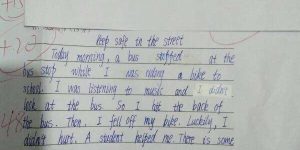 +20
Keep safe in the street
Today morning, a bus stopped at the
bus stop while I was riding a bike to
school. I was listening to music and I didn't
look at the bus. So I hit the back of
the bus. Then I fell off my bike. Luckily, I
didn't hurt. A student helped me There is some